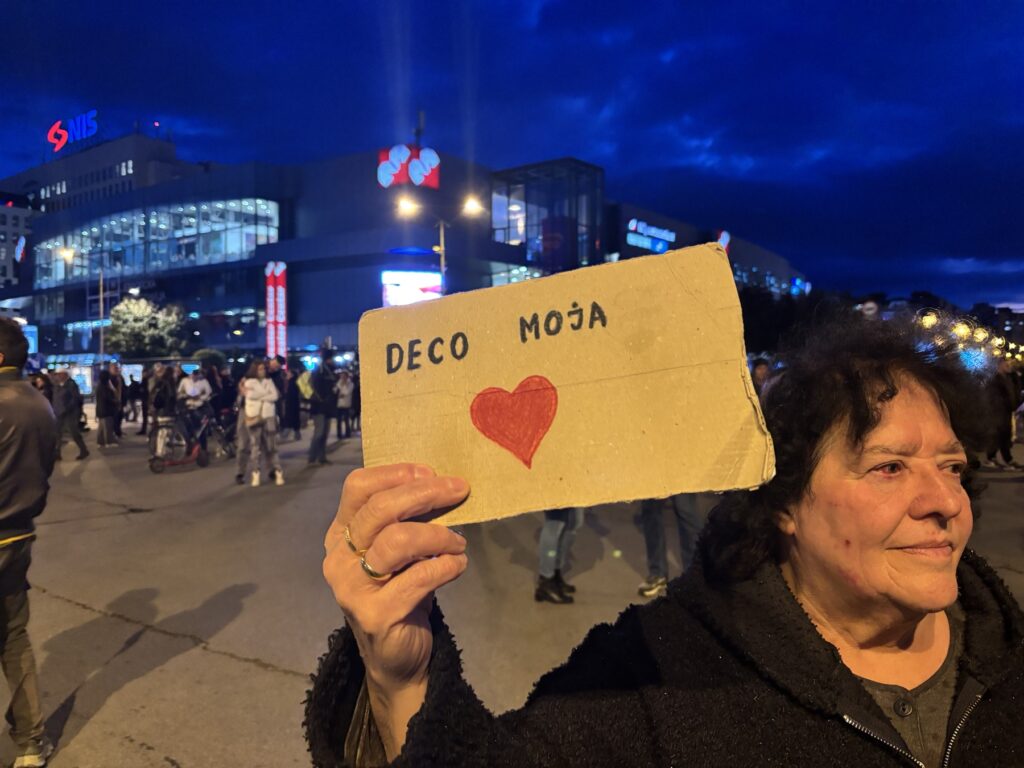 NIS
DECO MOJA